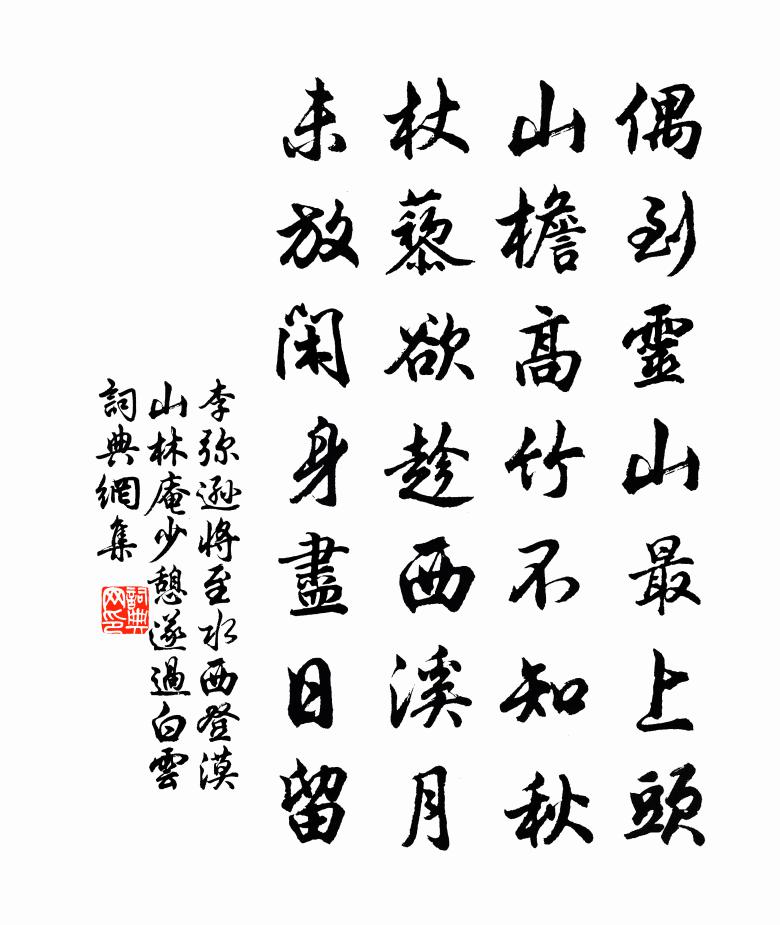 偶到靈山最上頭
山檐高竹不知秋
杖藜欲趁西溪月
未放閑身盡日留
李弥遜將至水西登漠
山林庵少憩遂過白雲
詞典網集
詞典
网印